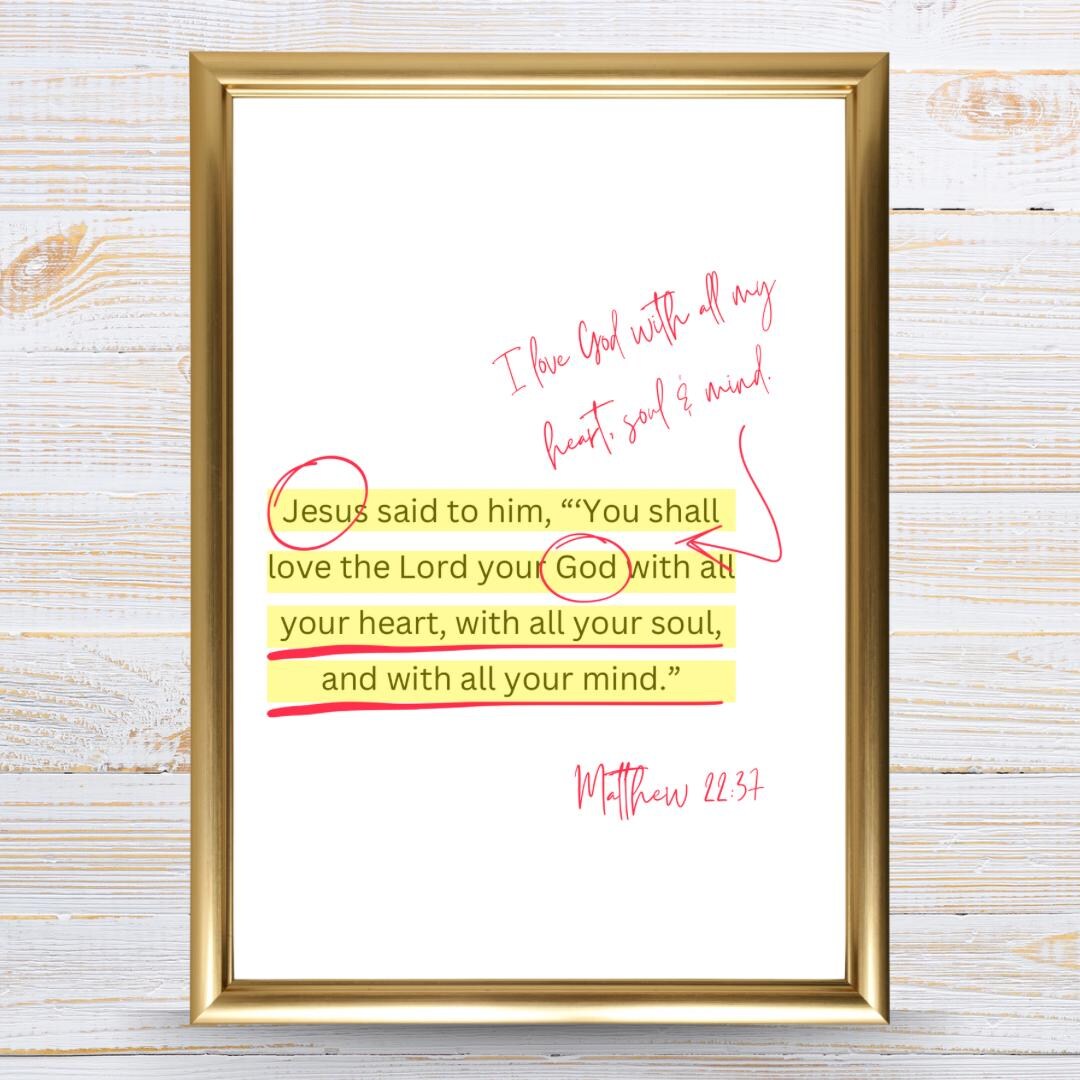 I love God with all my
heart, soul & mind.
Jesus said to him, “‘You shall
love the Lord your God with all
your heart, with all your soul,
and with all your mind.”
Matthew 22:37